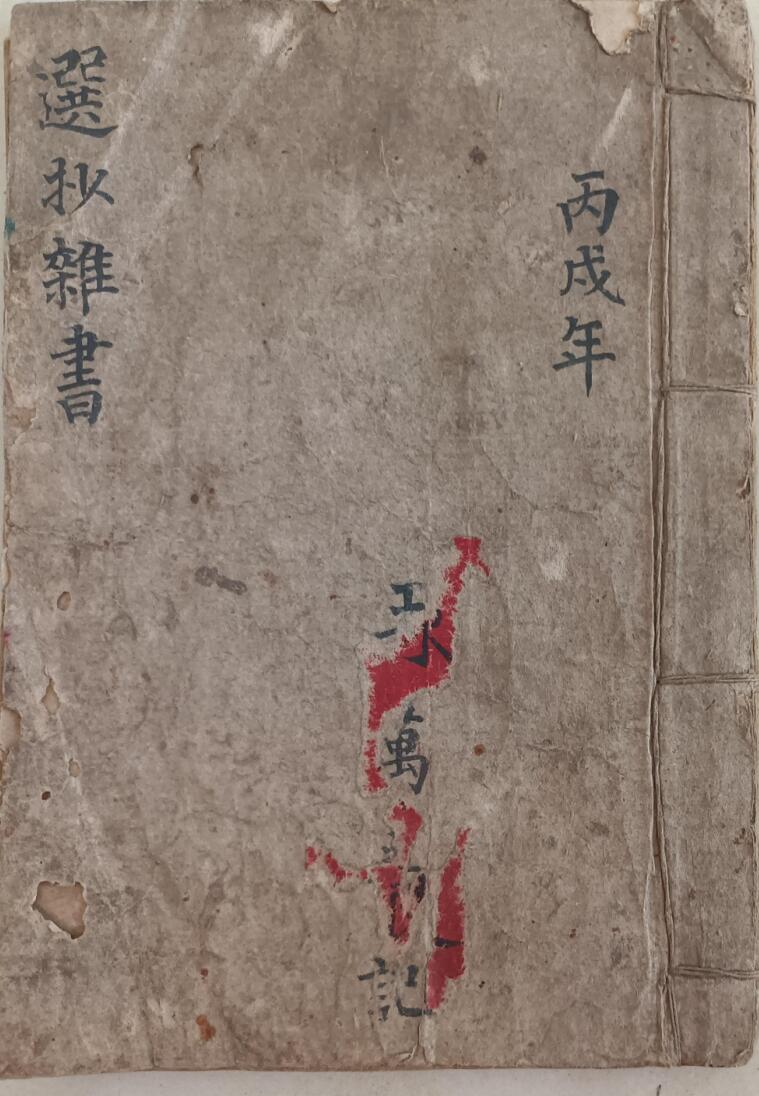 丙戌年
萬
記
選抄雜書